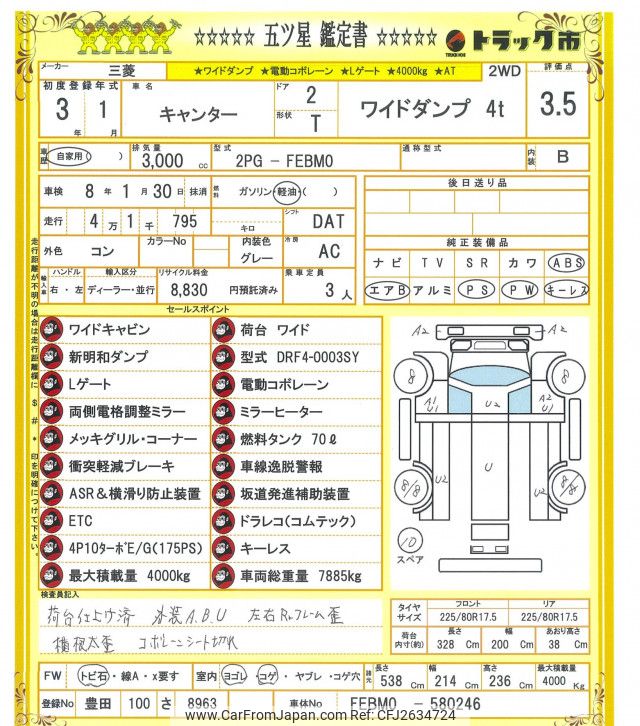 ☆☆☆☆☆ 五ツ星 鑑定書 ☆☆☆☆☆ トラック市
メーカー 三菱 ★ワイドダンプ ★電動コボレーン ★Lゲート ★4000kg ★AT 2WD 評価点
初度登録年式 3年 1月 車名 キャンター ドア 2 形状 T ワイドダンプ 4t 3.5
車歴 自家用( ) 排気量 3,000 cc 型式 2PG - FEBM0 通称型式 内装 B
車検 8年 1月 30日 抹消 燃料 ガソリン・軽油・( ) 後日送り品
走行 4万 1千 795 キロ シフト DAT
純正装備品
外色 コン カラーNo 内装色 グレー 冷房 AC ナビ TV SR カワ ABS
輸入車 ハンドル 右・左 輸入区分 ディーラー・並行 リサイクル料金 8,830 円預託済み 乗車定員 3人 エアB アルミ PS PW キーレス
セールスポイント
ワイドキャビン 荷台 ワイド
新明和ダンプ 型式 DRF4-0003SY
Lゲート 電動コボレーン
両側電格調整ミラー ミラーヒーター
メッキグリル・コーナー 燃料タンク 70ℓ
衝突軽減ブレーキ 車線逸脱警報
ASR&横滑り防止装置 坂道発進補助装置
ETC ドラレコ(コムテック)
4P10ターボE/G(175PS) キーレス
最大積載量 4000kg 車両総重量 7885kg
走行距離が不明の場合は走行距離欄に $ # * 印を明確につけて下さい。
A2 A2
8 8
A1 U1 U2 A2 U1
U2 U U2
8/8 8/8
10
スペア
検査員記入
荷台仕上げ済 外装A.B.U 左右Rrフレーム歪
横根太歪 コボレーンシート切れ
タイヤサイズ フロント 225/80R17.5 リア 225/80R17.5
荷台内寸(約) 長さ 328 Cm 幅 200 Cm あおり高さ 38 Cm
FW トビ石・線A・x要す 室内 ヨゴレ・コゲ・ヤブレ・コゲ穴 諸元 長さ 538 Cm 幅 214 Cm 高さ 236 Cm 最大積載量 4000 Kg
登録No 豊田 100 さ 8963 車体No FEBM0 - 580246
www.CarFromJapan.com Ref: CFJ2634724